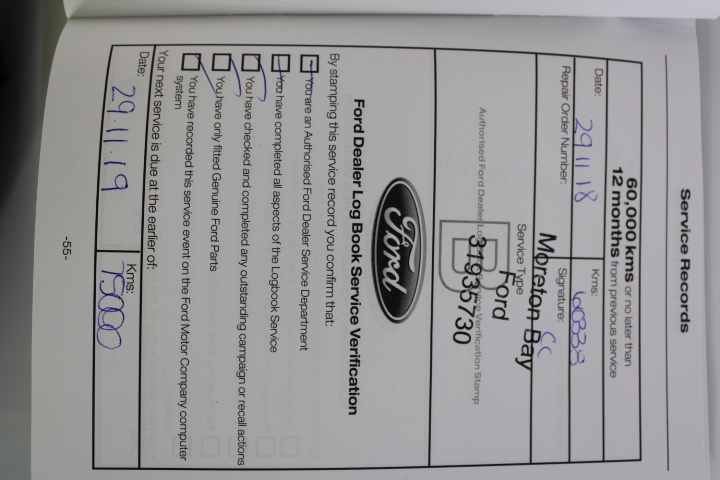 Service Records
60,000 kms or no later than
12 months from previous service
Date: 29 11 18 Kms: 60338
Repair Order Number: Signature:
Moreton Bay
Service Type
Ford
Authorised Ford Dealer Log Service Verification Stamp
B
31935730
Ford
Ford Dealer Log Book Service Verification
By stamping this service record you confirm that:
You are an Authorised Ford Dealer Service Department
You have completed all aspects of the Logbook Service
You have checked and completed any outstanding campaign or recall actions
You have only fitted Genuine Ford Parts
You have recorded this service event on the Ford Motor Company computer
system
Your next service is due at the earlier of:
Date: 29.11.19 Kms: 75000
-55-